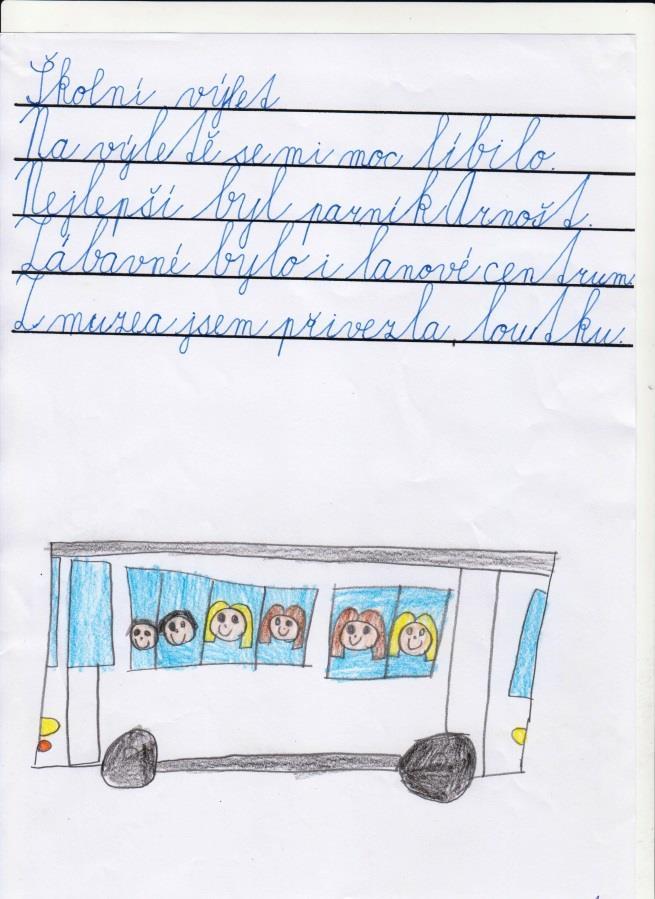 Školní výlet
Na výletě se mi moc líbilo.
Nejlepší byl parník Arnošt.
Zábavné bylo i lanové centrum.
Z muzea jsem přivezla loutku.